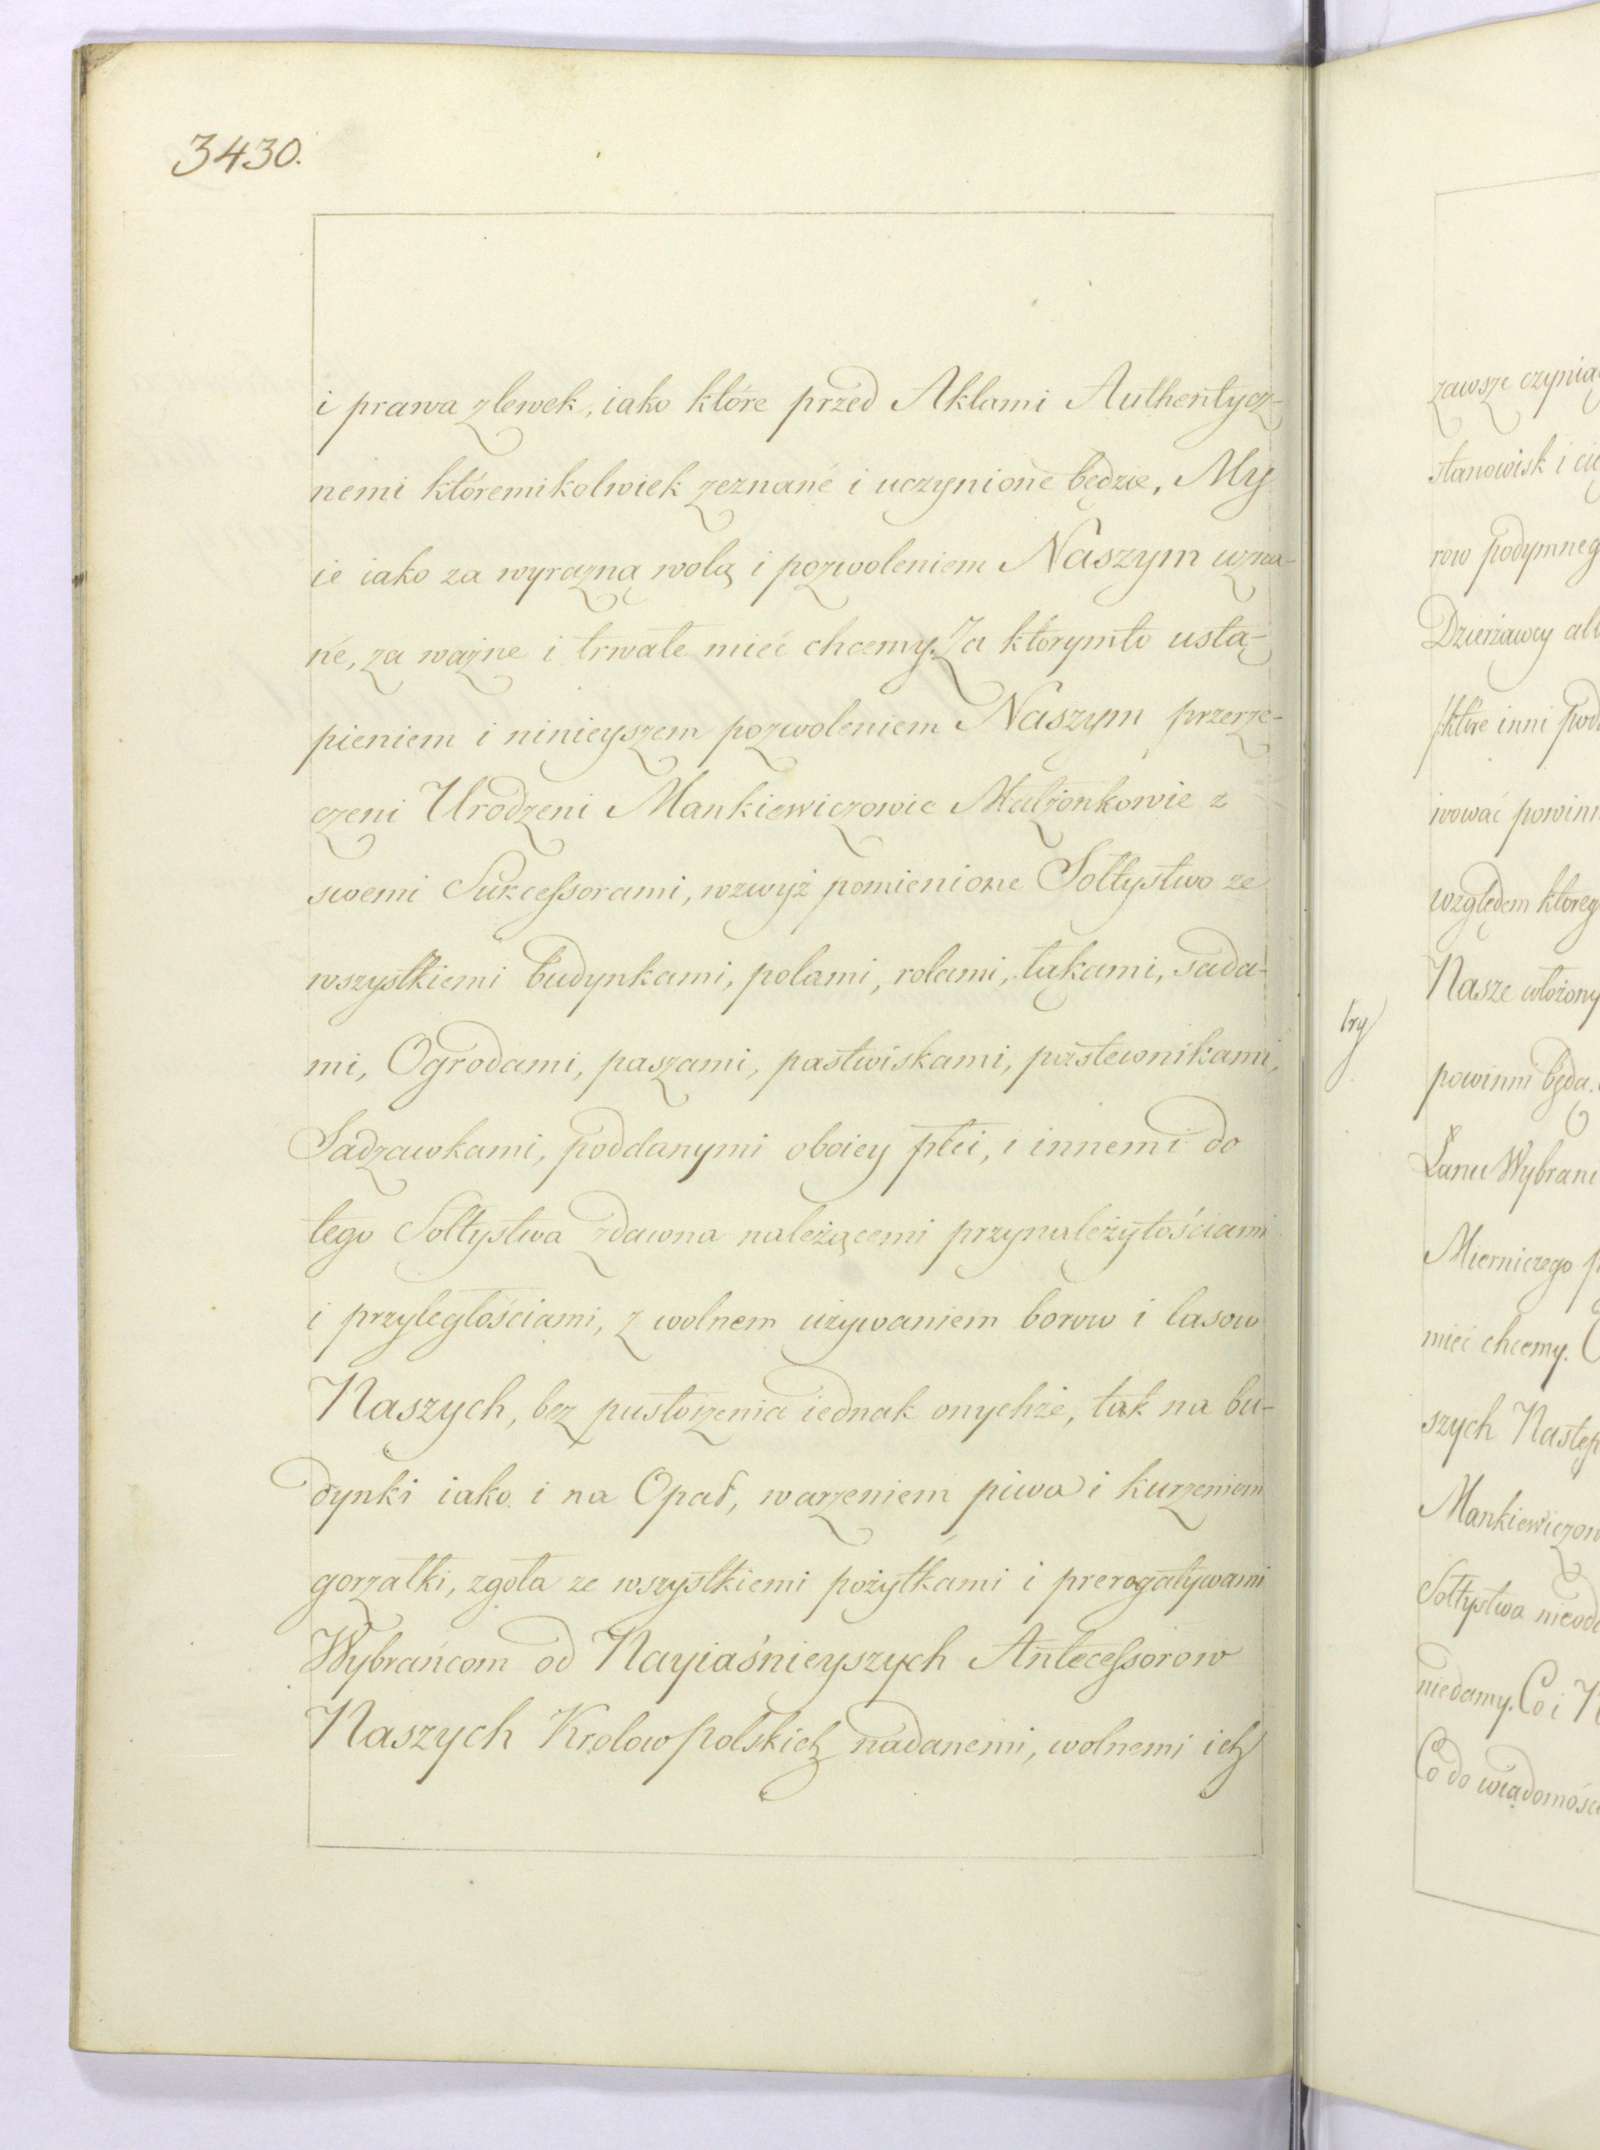 3430.
i prawa zlewek, iako które przed Aktami Authentycz-
nemi któremikolwiek zeznané i uczynione będzie, My
ie iako za wyrazną wolą i pozwoleniem Naszym uzna-
né, za ważne i trwałe mieć chcemy. Za ktorymto ustą-
pieniem i ninieyszem pozwoleniem Naszym przerze-
czeni Urodzeni Mankiewiczowie Małżonkowie z
swemi Sukcessorami, wzwyż pomienione Sołtystwo ze
wszystkiemi budynkami, polami, rolami, łąkami, sada-
mi, Ogrodami, paszami, pastwiskami, pastewnikami,
Sadzawkami, poddanymi oboiey płci, i innemi do
tego Sołtystwa zdawna należącemi przynależytościami
i przyległościami, z wolnem używaniem borow i lasow
Naszych, bez pustoszenia iednak onychże, tak na bu-
dynki iako i na Opał, warzeniem piwa i kurzeniem
gorzałki, zgoła ze wszystkiemi pożytkami i prerogatywami
Wybrańcom od Nayiaśnieyszych Antecessorow
Naszych Krolow Polskich nadanemi, wolnemi ich
zawsze
stanowisk i
row
Dzierżawcy
które inni
wować
względem
Nasze
try
powinni będą.
Łanu
Mierniczego
mieć chcemy.
szych
Sołtystwa
niedamy. Co i
Co do